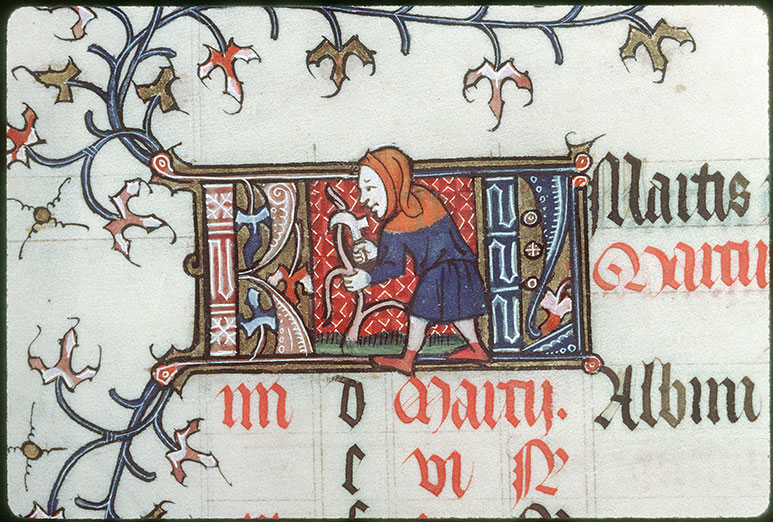 KL Martis
Martii
iiii d Martij. Albini
e vi N